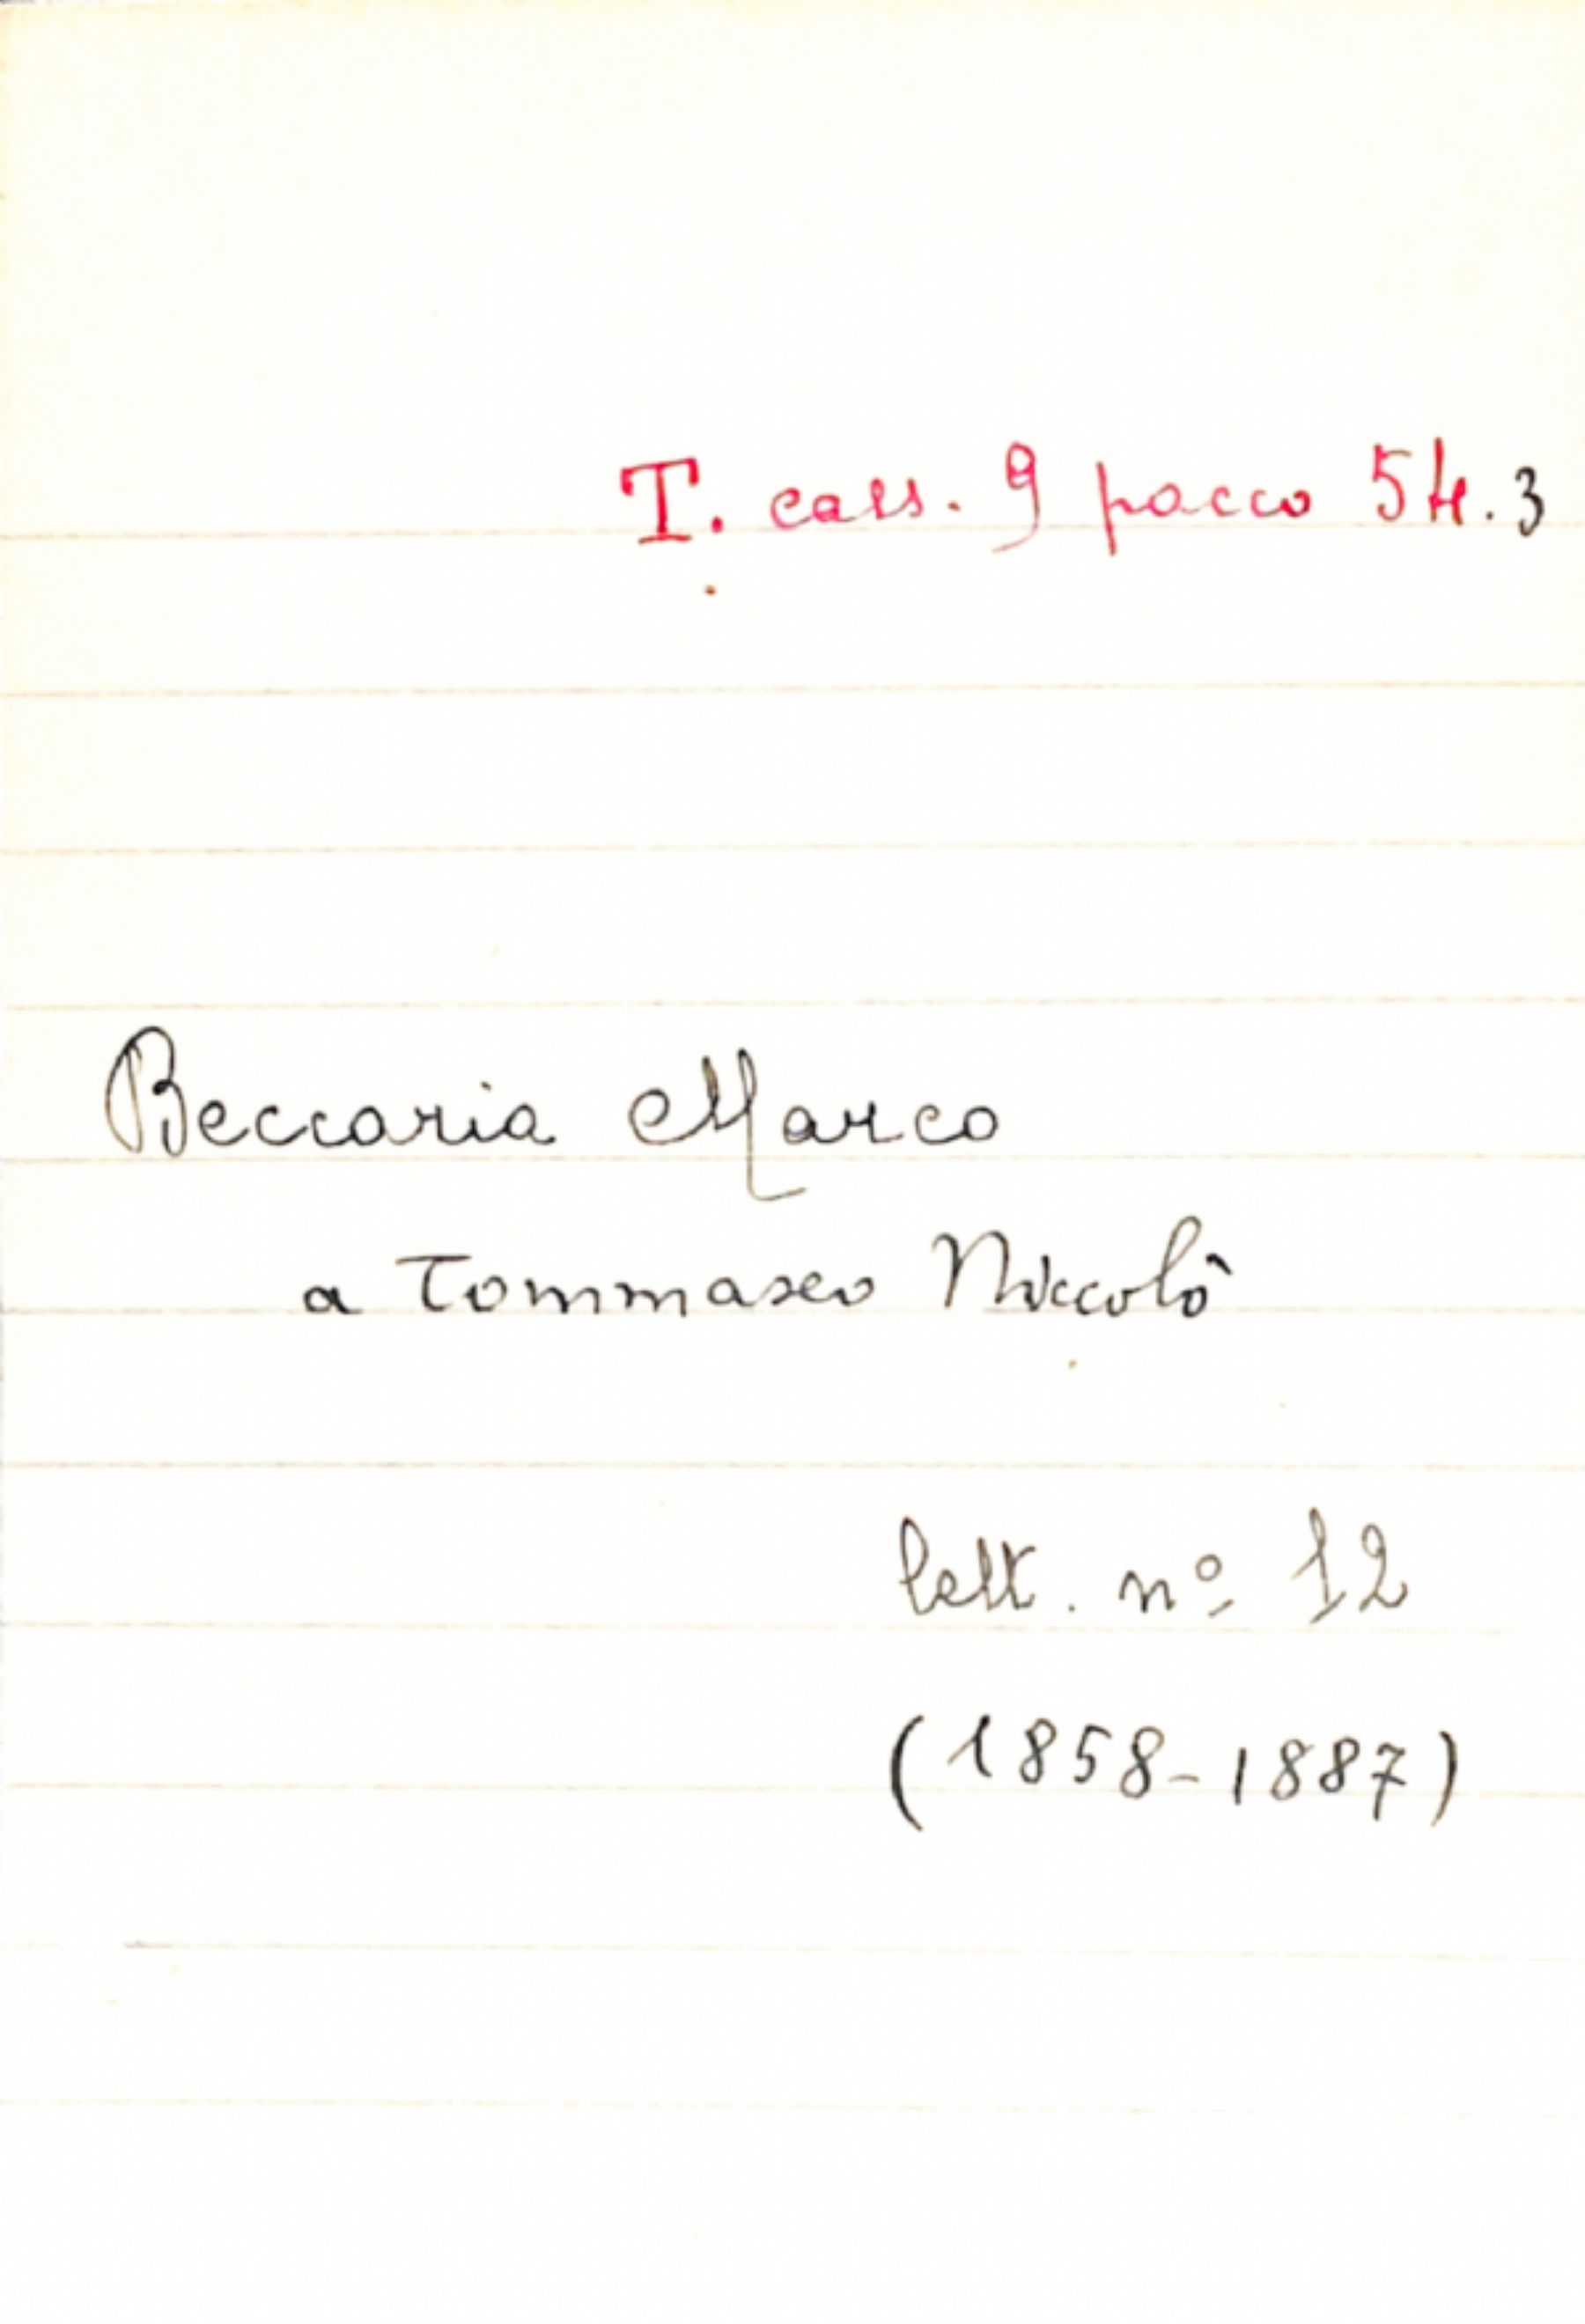 T. cass. 9 pacco 54.3
Beccaria Marco
a Tommaseo Niccolò
lett. nº 12
(1858-1887)